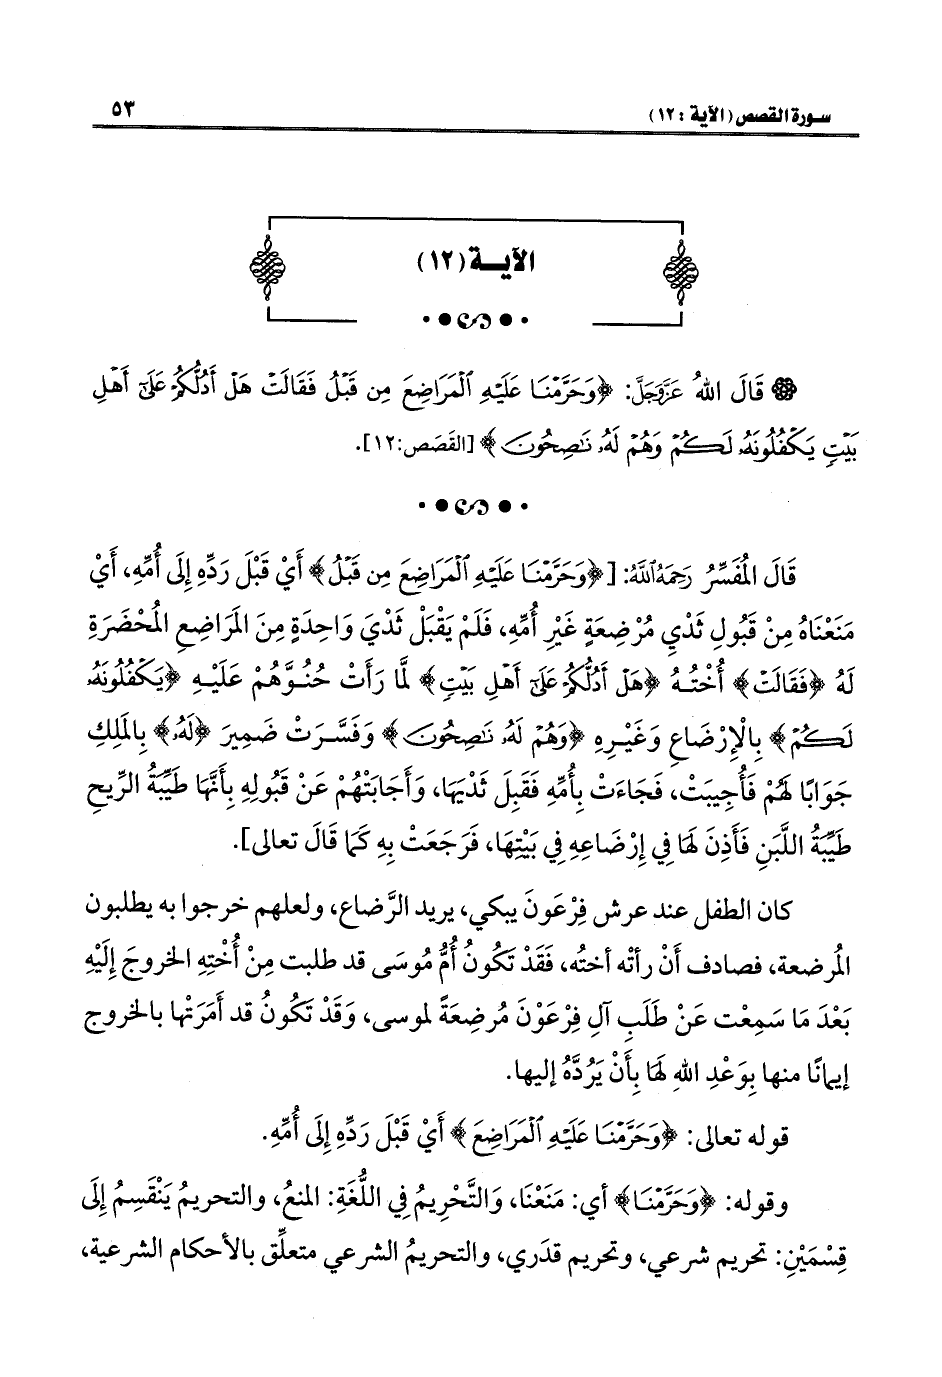 سورة القصص (الآية : ١٢)
٥٣
الآيــة (١٢)
قَالَ اللهُ عَزَّوَجَلَّ: ﴿وَحَرَّمْنَا عَلَيْهِ ٱلْمَرَاضِعَ مِن قَبْلُ فَقَالَتْ هَلْ أَدُلُّكُمْ عَلَىٰٓ أَهْلِ
بَيْتٍ يَكْفُلُونَهُۥ لَكُمْ وَهُمْ لَهُۥ نَـٰصِحُونَ﴾ [القَصَص:١٢].
قَالَ المُفَسِّرُ رَحِمَهُ اللَّهُ: [﴿وَحَرَّمْنَا عَلَيْهِ ٱلْمَرَاضِعَ مِن قَبْلُ﴾ أَيْ قَبْلَ رَدِّهِ إِلَى أُمِّهِ، أَيْ
مَنَعْنَاهُ مِنْ قَبُولِ ثَدْيِ مُرْضِعَةٍ غَيْرِ أُمِّهِ، فَلَمْ يَقْبَلْ ثَدْيَ وَاحِدَةٍ مِنَ المَرَاضِعِ المُحْضَرَةِ
لَهُ ﴿فَقَالَتْ﴾ أُخْتُهُ ﴿هَلْ أَدُلُّكُمْ عَلَىٰٓ أَهْلِ بَيْتٍ﴾ لَمَّا رَأَتْ حُنُوَّهُمْ عَلَيْهِ ﴿يَكْفُلُونَهُۥ
لَكُمْ﴾ بِالْإِرْضَاعِ وَغَيْرِهِ ﴿وَهُمْ لَهُۥ نَـٰصِحُونَ﴾ وَفَسَّرَتْ ضَمِيرَ ﴿لَهُۥ﴾ بِالمَلِكِ
جَوَابًا لَهُمْ فَأُجِيبَتْ، فَجَاءَتْ بِأُمِّهِ فَقَبِلَ ثَدْيَهَا، وَأَجَابَتْهُمْ عَنْ قَبُولِهِ بِأَنَّهَا طَيِّبَةُ الرِّيحِ
طَيِّبَةُ اللَّبَنِ فَأَذِنَ لَهَا فِي إِرْضَاعِهِ فِي بَيْتِهَا، فَرَجَعَتْ بِهِ كَمَا قَالَ تعالى].
كان الطفل عند عرش فِرْعَونَ يبكي، يريد الرَّضاع، ولعلهم خرجوا به يطلبون
المُرضعة، فصادف أَنْ رأتْه أختُه، فَقَدْ تَكُونُ أُمُّ مُوسَى قد طلبت مِنْ أُخْتِهِ الخروجَ إِلَيْهِ
بَعْدَ مَا سَمِعْت عَنْ طَلَبِ آلِ فِرْعَوْنَ مُرضِعَةً لموسى، وَقَدْ تَكُونُ قد أَمَرَتْها بالخروج
إيمانًا منها بِوَعْدِ اللهِ لَهَا بِأَنْ يَرُدَّهُ إليها.
قوله تعالى: ﴿وَحَرَّمْنَا عَلَيْهِ ٱلْمَرَاضِعَ﴾ أَيْ قَبْلَ رَدِّهِ إِلَى أُمِّهِ.
وقوله: ﴿وَحَرَّمْنَا﴾ أي: مَنَعْنَا، وَالتَّحْرِيمُ فِي اللُّغَةِ: المنعُ، والتحريمُ يَنْقَسِمُ إِلَى
قِسْمَيْنِ: تحريم شرعي، وتحريم قدَري، والتحريمُ الشرعي متعلِّق بالأحكام الشرعية،